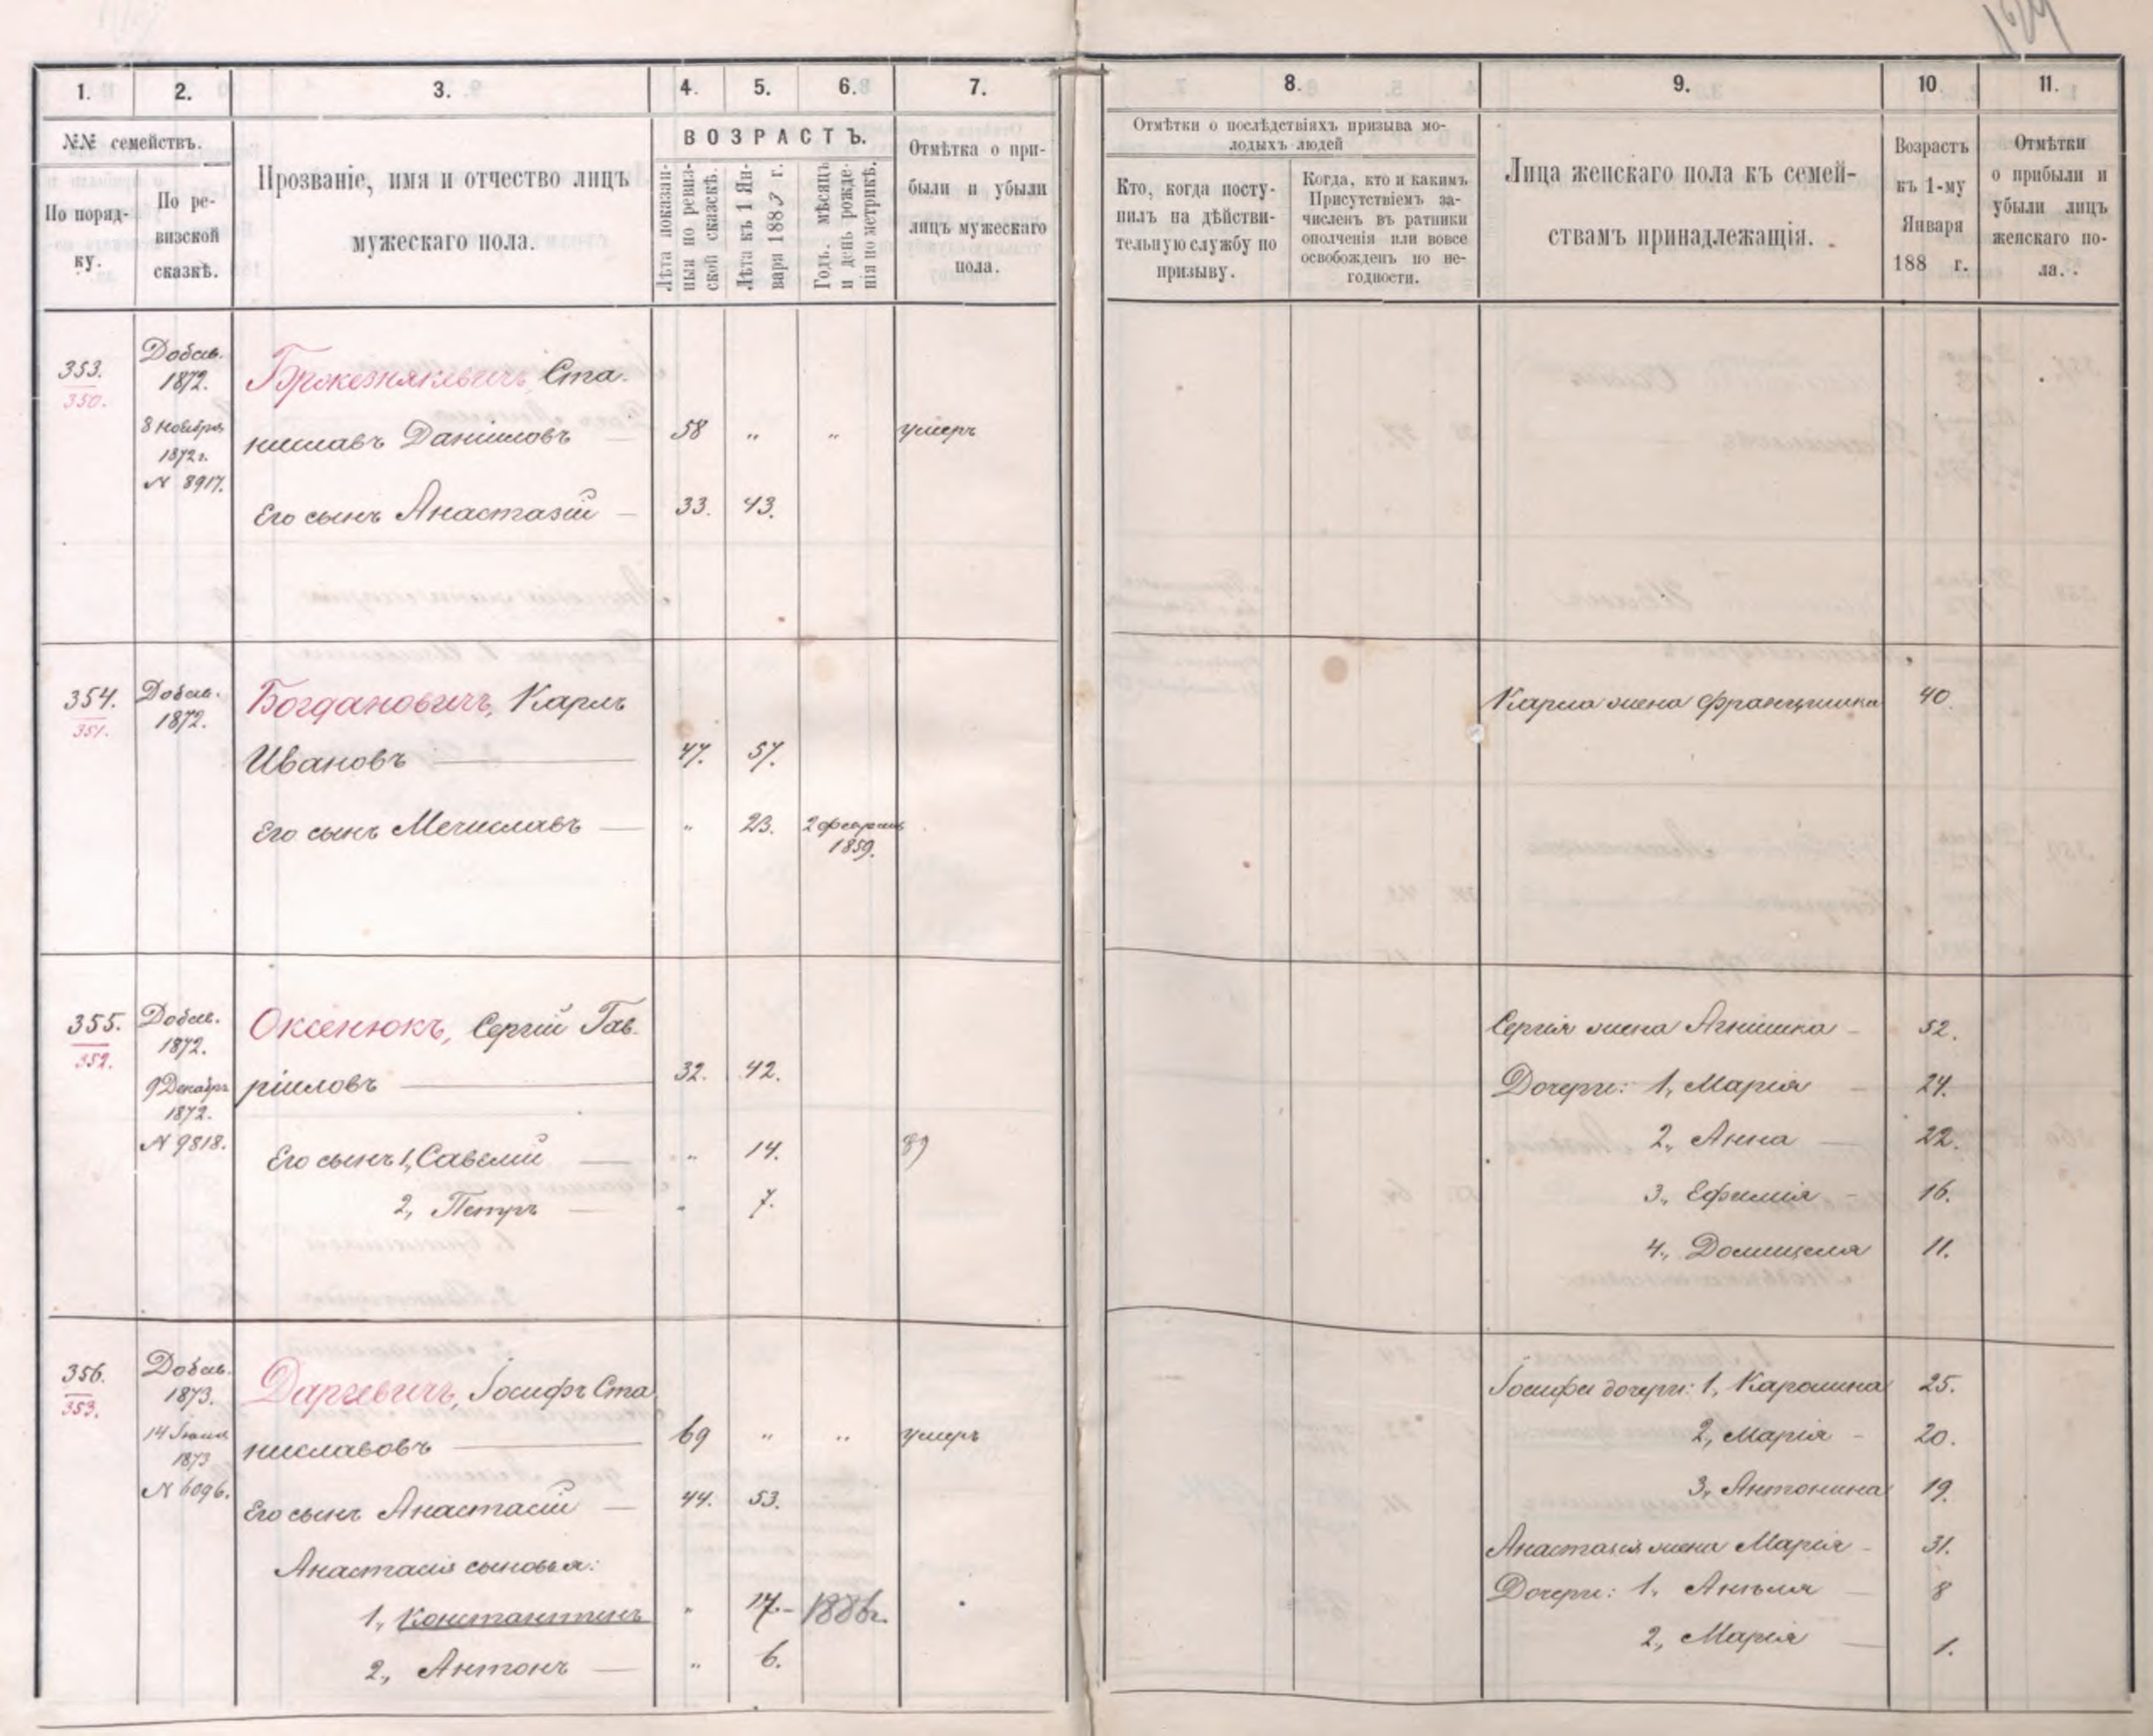 1.
2.
3.
4.
5.
6.
7.
8.
9.
10
11.
№№ семействъ.
По поряд-
ку.
По ре-
визской
сказкѣ.
Прозваніе, имя и отчество лицъ
мужескаго пола.
ВОЗРАСТЪ.
Лѣта показан-
ныя по ревиз-
ской сказскѣ.
Лѣта къ 1 Ян-
варя 1883 г.
Годъ, мѣсяцъ
и день рожде-
нія по метрикѣ.
Отмѣтка о при-
были и убыли
лицъ мужескаго
пола.
Отмѣтки о послѣдствіяхъ призыва мо-
лодыхъ людей
Кто, когда посту-
пилъ на дѣйстви-
тельную службу по
призыву.
Когда, кто и какимъ
Присутствіемъ за-
численъ въ ратники
ополченія или вовсе
освобожденъ по не-
годности.
Лица женскаго пола къ семей-
ствамъ принадлежащія.
Возрастъ
къ 1-му
Января
188 г.
Отмѣтки
о прибыли и
убыли лицъ
женскаго по-
ла.
353.
350.
Добав.
1872.
8 Ноября
1872 г.
N 8917.
Ста-
ниславъ Даніиловъ — 58 " " умеръ
Его сынъ Анастазій — 33. 43.
354.
351.
Добав.
1872.
Богдановичъ, Карлъ
Ивановъ — 47. 57.
Его сынъ Мечиславъ — " 23. 2 февраля
1859.
Карла жена Францишка 40.
355.
352.
Добав.
1872.
9 Декабря
1872.
N 9818.
Оксенюкъ, Сергій Гав-
ріиловъ — 32. 42.
Его сынъ 1, Савелій — " 14. 89
2, Петръ — " 7.
Сергія жена Агнишка — 52.
Дочери: 1, Марія — 24.
2, Анна — 22.
3, Ефимія — 16.
4, Домицеля 11.
356.
353.
Добав.
1873.
14 Іюня
1873
N 6096.
Даргевичъ, Іосифъ Ста-
ниславовъ — 69 " " умеръ
Его сынъ Анастасій — 44. 53.
Анастасія сыновья:
1, Константинъ " 17. - 1886 г.
2, Антонъ — " 6.
Іосифа дочери: 1, Каролина 25.
2, Марія — 20.
3, Антонина 19.
Анастасія жена Марія — 31.
Дочери: 1, Анѣля — 8
2, Марія — 1.